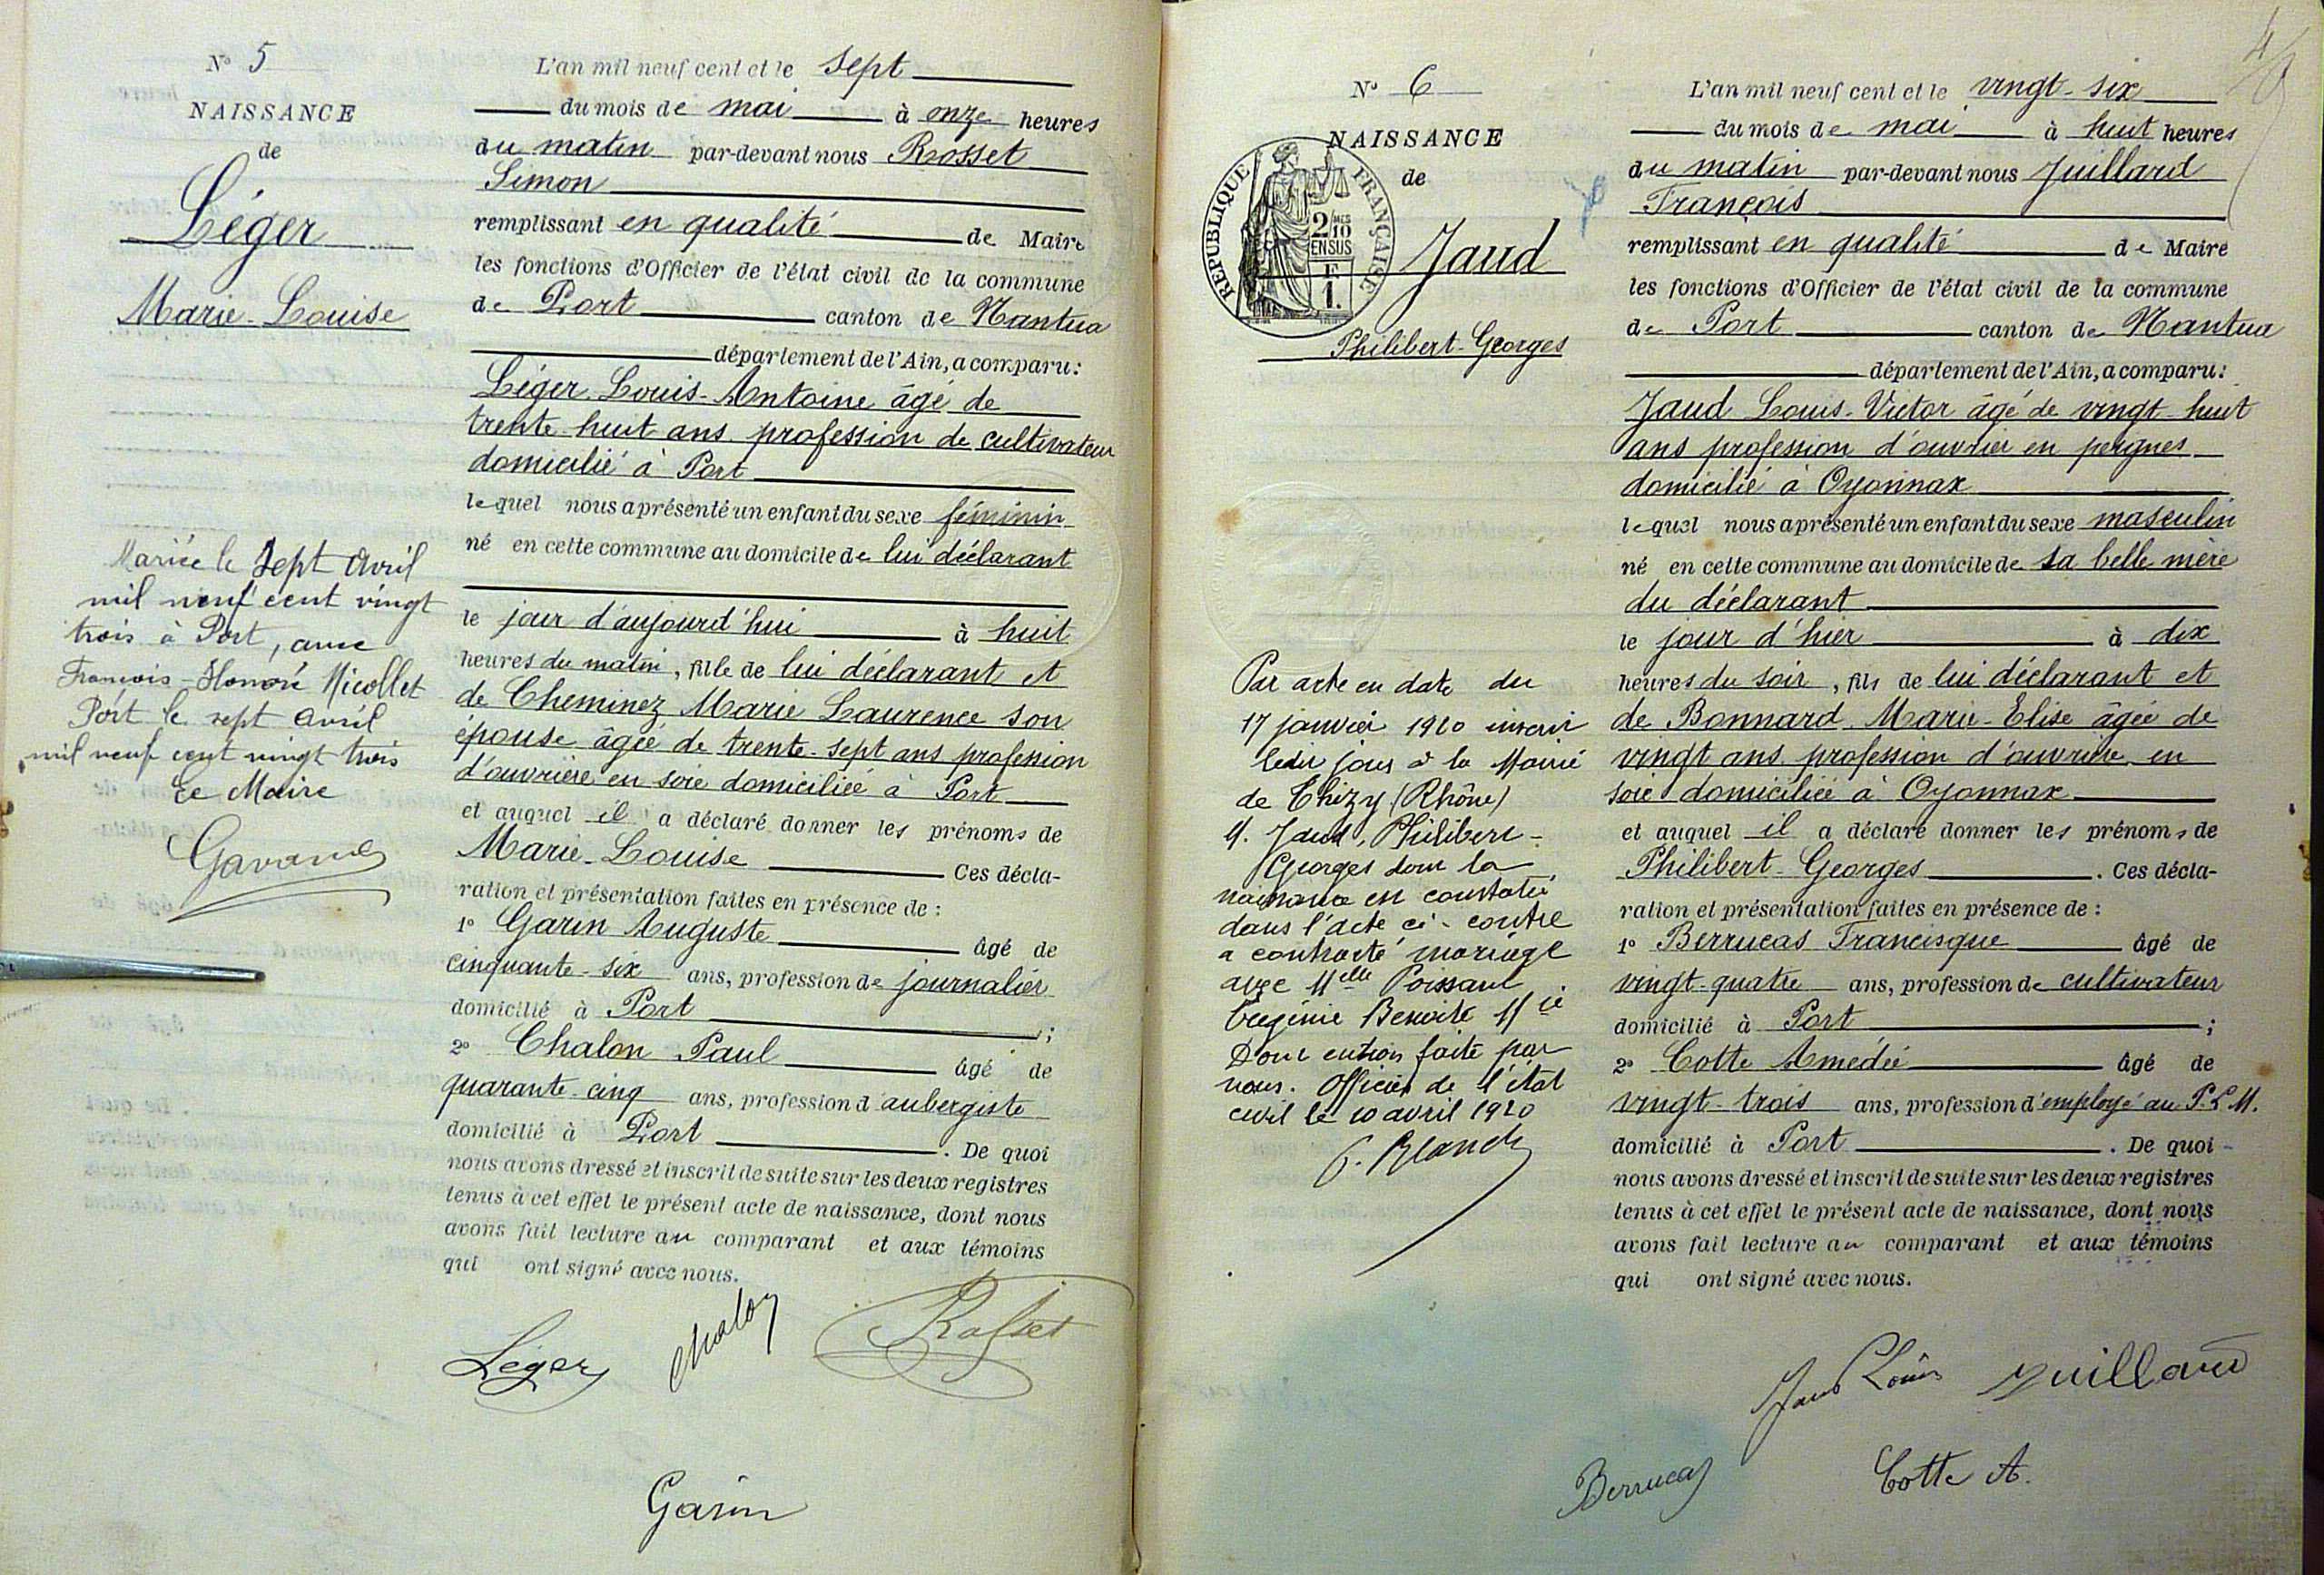 N° 5
NAISSANCE
de
Léger
Marie-Louise
Mariée le sept avril
mil neuf cent vingt
trois à Port, avec
François-Honoré Nicollet
Port le sept avril
mil neuf cent vingt trois
Le Maire
L'an mil neuf cent et le sept
du mois de mai à onze heures
du matin par-devant nous Rosset
Simon
remplissant en qualité de Maire
les fonctions d'Officier de l'état civil de la commune
de Port canton de Nantua
département de l'Ain, a comparu:
Léger Louis-Antoine âgé de
trente huit ans profession de cultivateur
domicilié à Port
lequel nous a présenté un enfant du sexe féminin
né en cette commune au domicile de lui déclarant
le jour d'aujourd'hui à huit
heures du matin, fille de lui déclarant et
de Cheminez Marie Laurence son
épouse âgée de trente-sept ans profession
d'ouvrière en soie domiciliée à Port
et auquel il a déclaré donner les prénoms de
Marie-Louise Ces décla-
ration et présentation faites en présence de :
1° Garin Auguste âgé de
cinquante-six ans, profession de journalier
domicilié à Port ;
2° Chalon Paul âgé de
quarante-cinq ans, profession d'aubergiste
domicilié à Port . De quoi
nous avons dressé et inscrit de suite sur les deux registres
tenus à cet effet le présent acte de naissance, dont nous
avons fait lecture au comparant et aux témoins
qui ont signé avec nous.
Léger Chalon Rosset
Garin
4
N° 6
NAISSANCE
de
RÉPUBLIQUE FRANÇAISE
2 MES
10
EN SUS
F.
1.
Jaud
Philibert-Georges
Par acte en date du
17 janvier 1920 inscrit
ledit jour à la Mairie
de Thizy (Rhône)
M. Jaud, Philibert-
Georges dont la
naissance est constatée
dans l'acte ci-contre
a contracté mariage
avec Melle
Benoite
faite par
nous. Officier de l'état
civil le 10 avril 1920
L'an mil neuf cent et le vingt-six
du mois de mai à huit heures
du matin par-devant nous Juillard
François
remplissant en qualité de Maire
les fonctions d'Officier de l'état civil de la commune
de Port canton de Nantua
département de l'Ain, a comparu:
Jaud Louis-Victor âgé de vingt-huit
ans profession d'ouvrier en peignes
domicilié à Oyonnax
lequel nous a présenté un enfant du sexe masculin
né en cette commune au domicile de sa belle mère
du déclarant
le jour d'hier à dix
heures du soir, fils de lui déclarant et
de Bonnard Marie-Elise âgée de
vingt ans profession d'ouvrière en
soie domiciliée à Oyonnax
et auquel il a déclaré donner les prénoms de
Philibert-Georges . Ces décla-
ration et présentation faites en présence de :
1° Berrucas Francisque âgé de
vingt-quatre ans, profession de cultivateur
domicilié à Port ;
2° Cotte Amédée âgé de
vingt-trois ans, profession d'employé au P.L.M.
domicilié à Port . De quoi
nous avons dressé et inscrit de suite sur les deux registres
tenus à cet effet le présent acte de naissance, dont nous
avons fait lecture au comparant et aux témoins
qui ont signé avec nous.
Jaud Louis Juillard
Berrucas Cotte A.